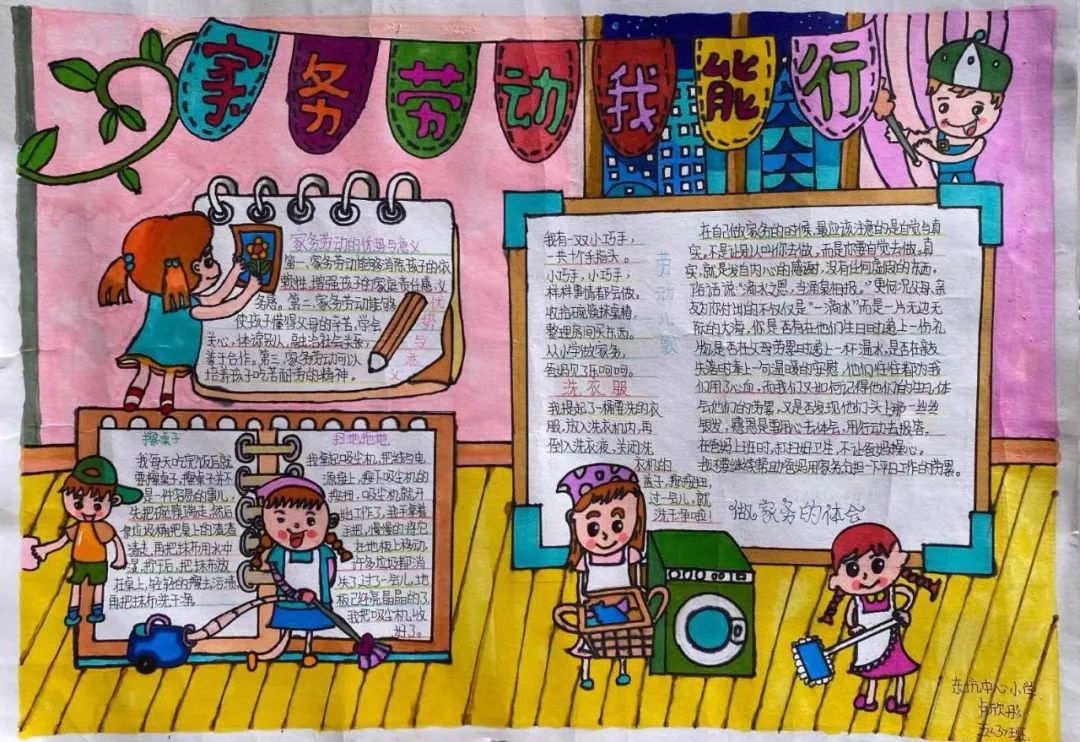 家务劳动我能行
家务劳动的优势与意义
第一,家务劳动能够消除孩子的依
赖性,增强孩子的家庭责任感,义
务感。第二,家务劳动能够
使孩子懂得父母的辛苦,学会
关心,体谅别人,融洽社会关系,
善于合作。第三,家务劳动可以
培养孩子吃苦耐劳的精神。
优势与意义
擦桌子
我每天吃完饭后就
要擦桌子,擦桌子并不
是一件容易的事儿,
先把碗筷端走,然后
拿垃圾桶把桌上的渣渣
清走,再把抹布用水冲
湿,把抹布放
在桌上,轻轻的擦去污渍,
再把抹布洗干净。
扫地拖地
我拿起吸尘机,把线与电
源接上,按下吸尘机的
按钮,吸尘机就开
始工作了,我手拿着
手把,慢慢的将它
在地板上移动,
许多垃圾都消
失了,过了一会儿,地
板已经亮晶晶的了,
我把吸尘机收
好了。
劳动儿歌
我有一双小巧手,
一共十个手指头。
小巧手,小巧手,
样样事情都会做。
收拾碗筷抹桌椅,
整理房间买东西。
从小学做家务,
爸妈见了乐呵呵。
洗衣服
我提起了一桶要洗的衣
服,放入洗衣机内,再
倒入洗衣液,关闭洗
衣机的
盖子,按按钮,
过一会儿,就
洗干净啦!
在自己做家务的时候,最应该注意的是自觉与真
实,不是让别人叫你去做,而是你要自觉去做。真
实,就是发自内心的感谢,没有任何虚假的东西。
俗话说“滴水之恩,当涌泉相报。”更何况父母,亲
友为你付出的不仅仅是“一滴水”而是一片无边无
际的大海,你是否有在他们生日时递上一份礼
物,是否在父母劳累时递上一杯温水,是否在亲友
失落时奉上一句温暖的安慰,他们往往都为我
们用了心血,而我们又如何记得他们的生日,体
会他们的劳累,又是否发现他们头上那一丝丝
银发,感恩是要用心去体会,用行动去报答,
在爸妈上班时,打扫好卫生,不让爸妈操心。
我还要继续帮助爸妈用家务分担一下平日工作的劳累。
做家务的体会
东坑中心小学
卢欣彤